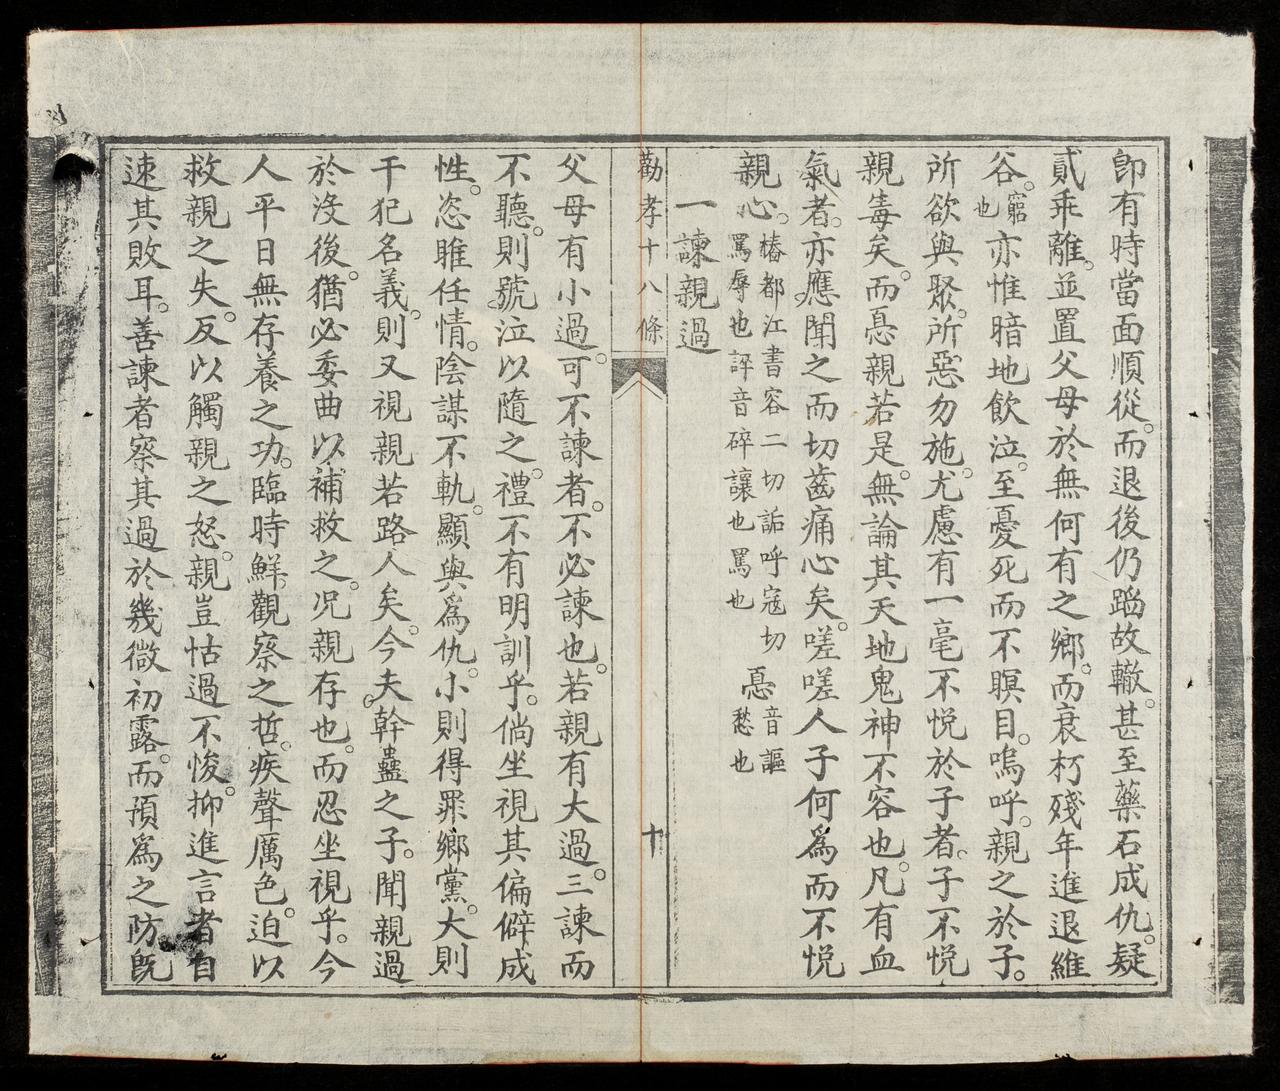 卽有時當面順從。而退後仍蹈故轍。甚至藥石成仇。疑
貳乖離。並置父母於無何有之鄉。而衰朽殘年進退維
谷。窮也亦惟暗地飲泣。至憂死而不瞑目。嗚呼。親之於子。
所欲與聚。所惡勿施。尤慮有一毫不悦於子者。子不悦
親毒矣。而惪親若是。無論其天地鬼神不容也。凡有血
氣者。亦應聞之而切齒痛心矣。嗟嗟人子何爲而不悦
親心。
樁都江書容二切詬呼寇切
罵辱也誶音碎讓也罵也
惪音謳
愁也
一諫親過
勸孝十八條
十
父母有小過。可不諫者。不必諫也。若親有大過。三諫而
不聽。則號泣以隨之。禮不有明訓乎。倘坐視其偏僻成
性。恣睢任情。陰謀不軌。顯與爲仇。小則得罪鄉黨。大則
干犯名義。則又視親若路人矣。今夫幹蠱之子。聞親過
於沒後。猶必委曲以補救之。况親存也。而忍坐視乎。今
人平日無存養之功。臨時鮮觀察之哲。疾聲厲色。迫以
救親之失。反以觸親之怒。親豈怙過不悛。抑進言者自
速其敗耳。善諫者察其過於幾微初露。而預爲之防旣